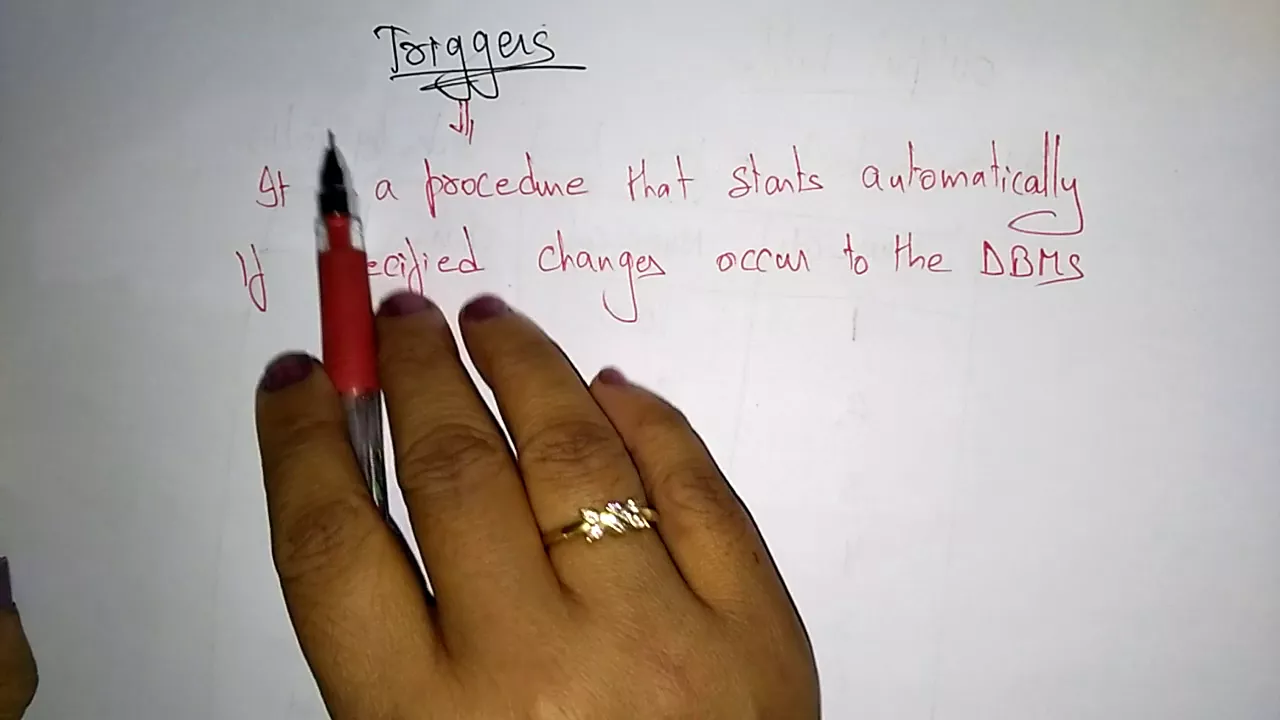 Triggers
It a procedure that starts automatically
If ecified changes occur to the DBMS